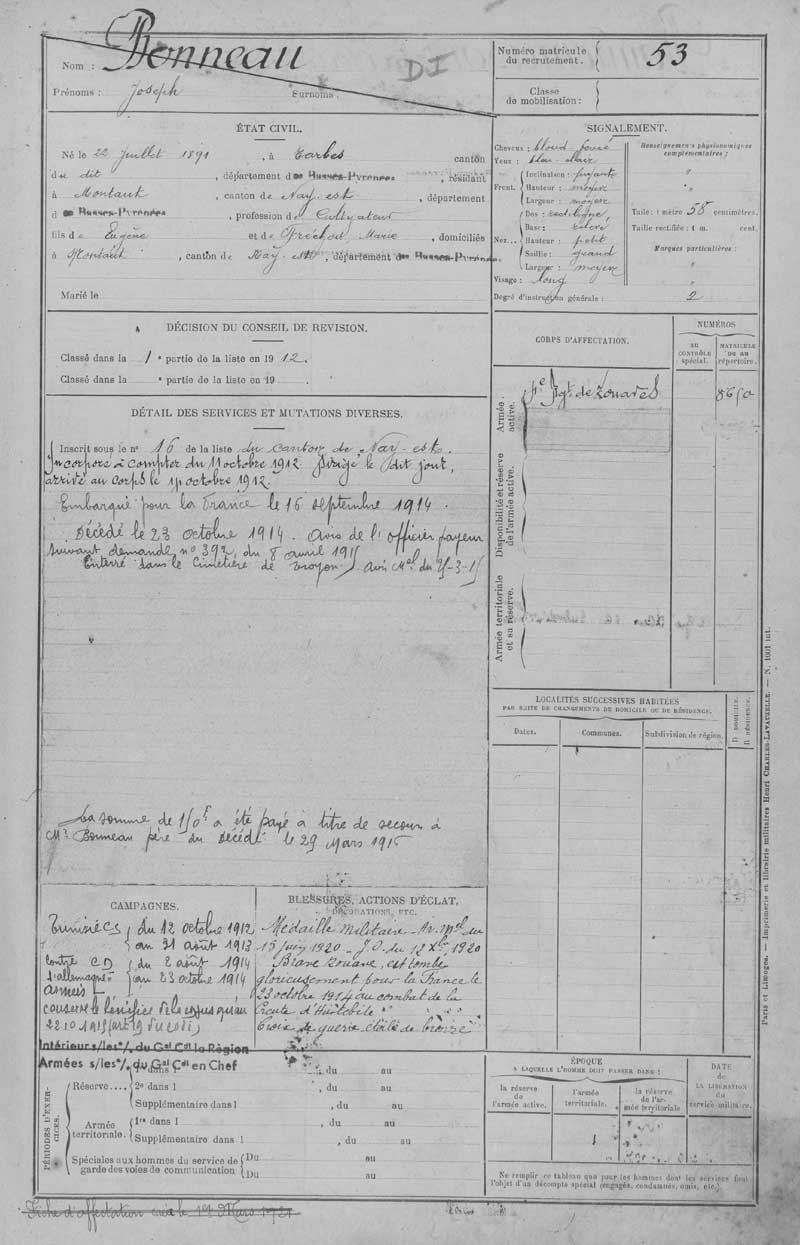 Nom : Bonneau
DI
Prénoms : Joseph Surnoms :
Numéro matricule du recrutement : 53
Classe de mobilisation :
ÉTAT CIVIL.
Né le 22 Juillet 1891, à Tarbes canton
du dit, département des Basses-Pyrénées, résidant
à Montaut, canton de Nay-est, département
d Basses-Pyrénées, profession de Cultivateur
fils de Eugène et de Marie, domiciliés
à Montaut, canton de Nay-est, département des Basses-Pyrénées
Marié le
SIGNALEMENT.
Cheveux : blond foncé
Yeux : bleu clair
Front. Inclinaison : fuyante
Hauteur : moyen
Largeur : moyen
Nez... Dos : rectiligne
Base :
Hauteur : petit
Saillie : grand
Largeur : moyen
Visage : long
Renseignements physionomiques complémentaires :
Taille : 1 mètre 58 centimètres.
Taille rectifiée : 1 m. cent.
Marques particulières :
Degré d'instruction générale : 2
DÉCISION DU CONSEIL DE REVISION.
Classé dans la 1e partie de la liste en 1912.
Classé dans la e partie de la liste en 19
CORPS D'AFFECTATION.
NUMÉROS
AU CONTRÔLE spécial.
MATRICULE OU AU répertoire.
Armée active.
4e Rgt de Zouaves 8650
Disponibilité et réserve de l'armée active.
Armée territoriale et sa réserve.
DÉTAIL DES SERVICES ET MUTATIONS DIVERSES.
Inscrit sous le n° 16 de la liste du canton de Nay-est.
Incorporé à compter du 11 octobre 1912. Dirigé le dit jour,
arrivé au corps le octobre 1912.
Embarqué pour la France le 16 septembre 1914.
Décédé le 23 octobre 1914. Avis de l'officier payeur
suivant demande n° 392, du 8 avril 1915
Enterré dans le Cimetière de Avis Mel du 25-3-15
La somme de 150f a été payé à titre de secours à
Mr Bonneau père du décédé le 29 Mars 1916
LOCALITÉS SUCCESSIVES HABITÉES
PAR SUITE DE CHANGEMENTS DE DOMICILE OU DE RÉSIDENCE.
Dates. Communes. Subdivision de région. D DOMICILE. R RÉSIDENCE.
CAMPAGNES.
Tunisie CS du 12 octobre 1912
au 31 août 1913
contre CD du 2 août 1914
l'allemagne au 23 octobre 1914
armées
conserve le bénéfice de
BLESSURES, ACTIONS D'ÉCLAT,
DÉCORATIONS, ETC.
Médaille Militaire Ar. Mel du
15 Juin 1920 - J.O. du 12 Xbre 1920
Brave Zouave, est tombé
glorieusement pour la France le
23 octobre 1914 au combat de la
d'Hurtebise
Croix de guerre étoile de bronze
Intérieur s/les % du Gal Cdt la Région
Armées s/les % du Gal Cdt en Chef
PÉRIODES D'EXERCICES.
, du au
Réserve.... 2e dans l , du au
Supplémentaire dans l , du au
Armée territoriale. 1re dans l , du au
Supplémentaire dans l , du au
Spéciales aux hommes du service de garde des voies de communication Du au
Du au
ÉPOQUE
A LAQUELLE L'HOMME DOIT PASSER DANS :
la réserve de l'armée active.
l'armée territoriale.
la réserve de l'armée territoriale
DATE de LA LIBÉRATION du service militaire.
Ne remplir ce tableau que pour les hommes dont les services font
l'objet d'un décompte spécial (engagés, condamnés, omis, etc.).
Fiche d'affectation créé le 1er Mars 1921
Paris et Limoges. — Imprimerie et librairie militaires Henri CHARLES-LAVAUZELLE. — N. 1001 int.